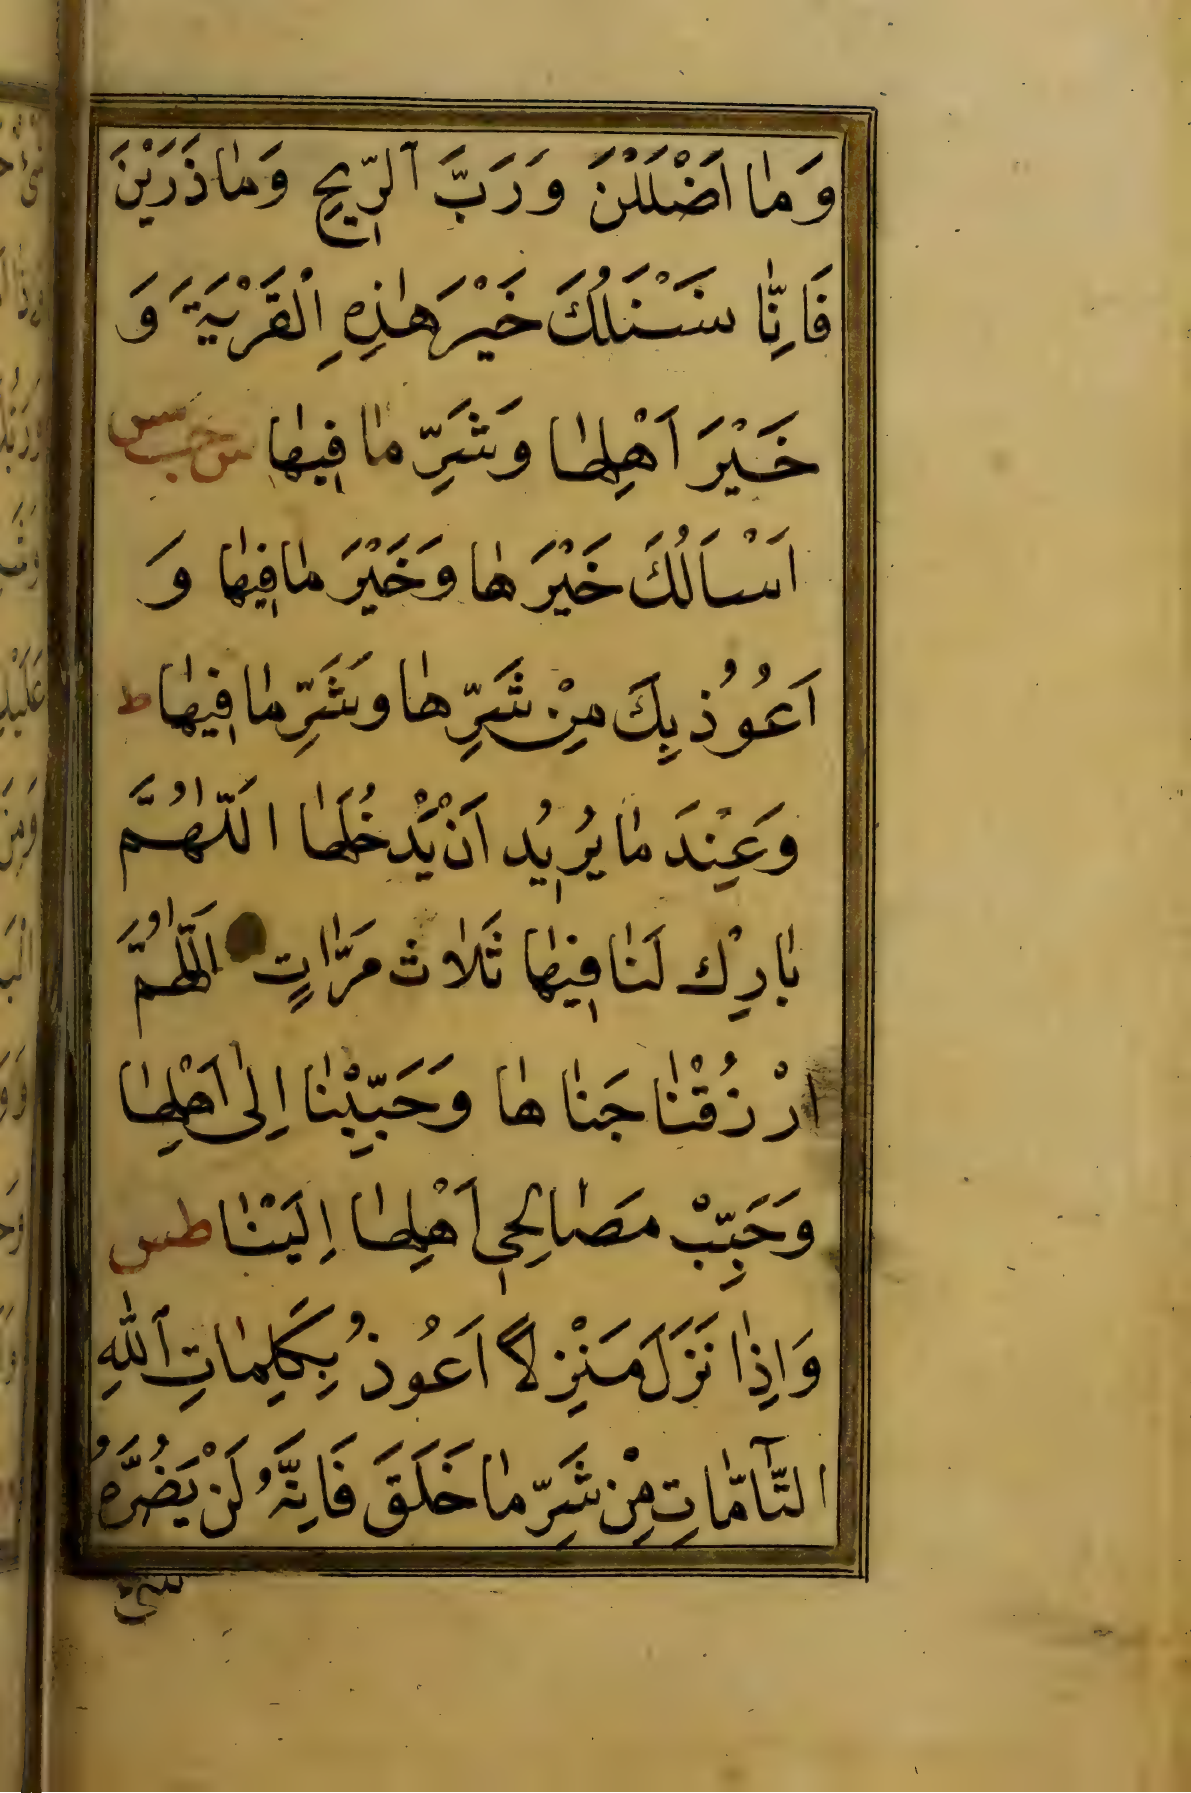 وَمَا اَضْلَلْنَ وَرَبَّ الرِّيحِ وَمَا ذَرَيْنَ
فَاِنَّا نَسْئَلُكَ خَيْرَ هٰذِهِ الْقَرْيَةِ وَ
خَيْرَ اَهْلِهَا وَشَرِّ مَا فِيهَا س حب مس
اَسْاَلُكَ خَيْرَهَا وَخَيْرَ مَا فِيهَا وَ
اَعُوُذُ بِكَ مِنْ شَرِّهَا وَشَرِّ مَا فِيهَا ط
وَعِنْدَ مَا يُرِيُد اَنْ يَدْخُلَهَا اللّٰهُمَّ
بَارِكْ لَنَا فِيهَا ثَلَاثَ مَرَّاتٍ اَللّٰهُمَّ
ارْزُقْنَا جَنَاهَا وَحَبِّبْنَا اِلٰى اَهْلِهَا
وَحَبِّبْ مَصَالِحِى اَهْلِهَا اِلَيْنَا طس
وَاِذَا نَزَلَ مَنْزِلًا اَعُوذُ بِكَلِمَاتِ اللهِ
التَّآمَّاتِ مِنْ شَرِّ مَا خَلَقَ فَاِنَّهُ لَنْ يَضُرَّهُ
شئ